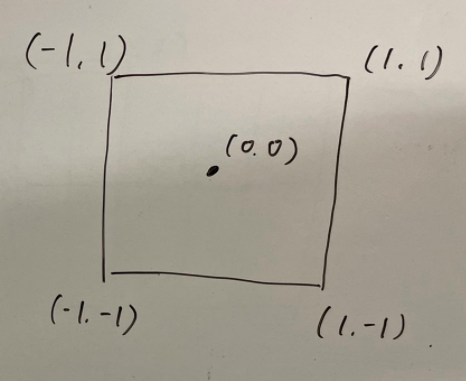 (-1, 1) (1. 1)
(0. 0)
(-1. -1) (1. -1)